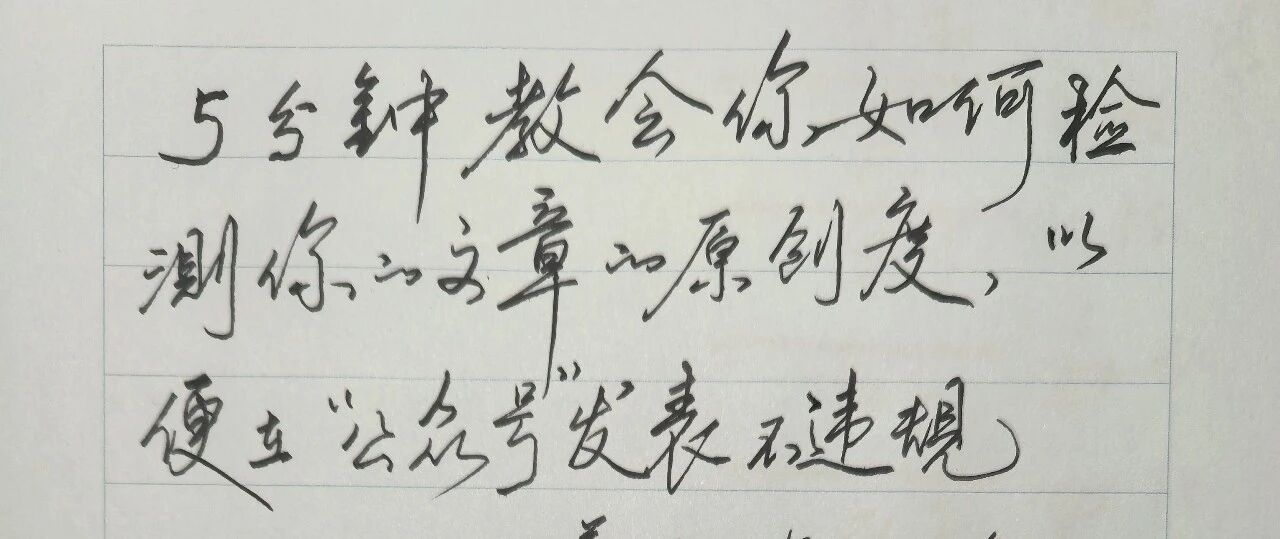 5分钟教会你如何检
测你的文章的原创度，以
便在“公众号”发表不违规